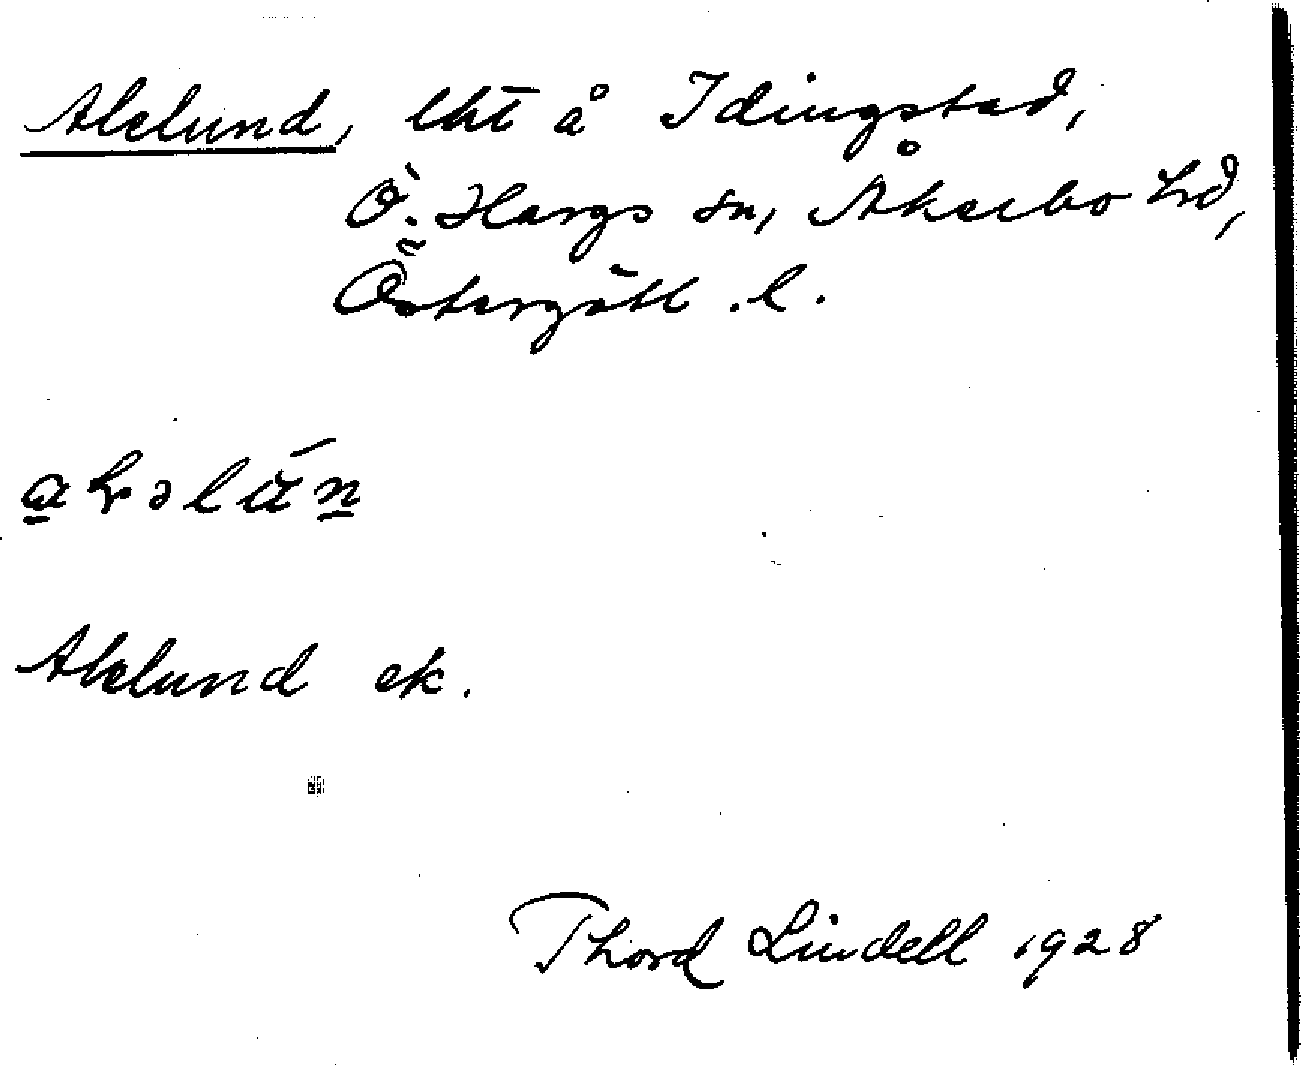 Alelund, lht å Idingstad,
Ö. Hargs sn, Åkerbo hd,
Östergötl. l.
Alelund ek.
Thord Lindell 1928